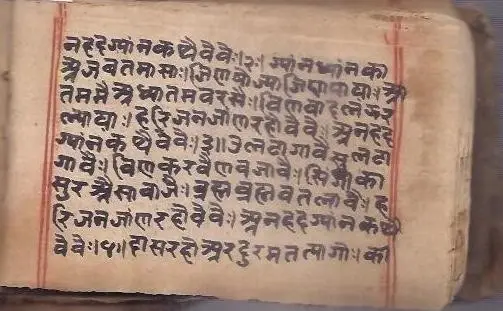 नहदेग्यांनकथैवैवैः।२ः। ग्यांनध्यांनको
अजबतमासाः। जिणषोज्याजिणपायाः। आ
तममैअध्यातमवरसैः। विणबादलऊर
ल्यायाः। हरिजनजांणरहौवैवैः। अनहदे
ग्यांनकथैवैवैः। ३।। उलटागावैसुलटा
गावैः। विणकरवैणवजावैः। सिंगीको
सुरअैसाबाजेः। ब्रह्मब्रह्मवतलावैः। ह
रिजनजांणरहौवैवैः। अनहदेग्यांनकथै
वैवैः। ४।। हासरहोअरदुरमतत्यागोः। को